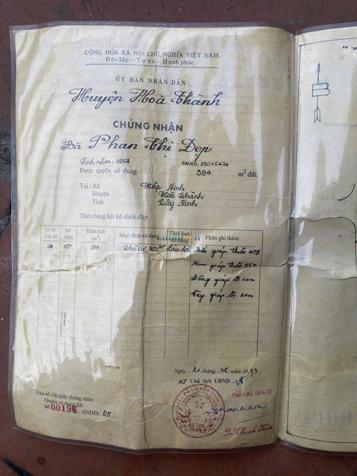 CỘNG HÒA XÃ HỘI CHỦ NGHĨA VIỆT NAM
Độc lập - Tự do - Hạnh phúc
ỦY BAN NHÂN DÂN
Huyện Hoà Thành
CHỨNG NHẬN
Bà Phan Thị Đẹp
Sinh năm: 1954 CMND,
Được quyền sử dụng 384 m² đất.
Tại: Xã Hiệp Ninh
Huyện Hoà Thành
Tỉnh Tây Ninh
Theo bảng liệt kê dưới đây:
Diện tích (m²) Mục đích sử dụng Phần ghi thêm
384 Thổ cư 300m² Lâu dài Bắc giáp thửa 478
Nam giáp thửa 550
Đông giáp
Tây giáp
Ngày 20 tháng 12 năm 1993
KT Chủ tịch UBND
PHÓ CHỦ TỊCH
Vào sổ cấp giấy chứng nhận
Quyền sử dụng đất
Số 00196 QSDĐ/ 05